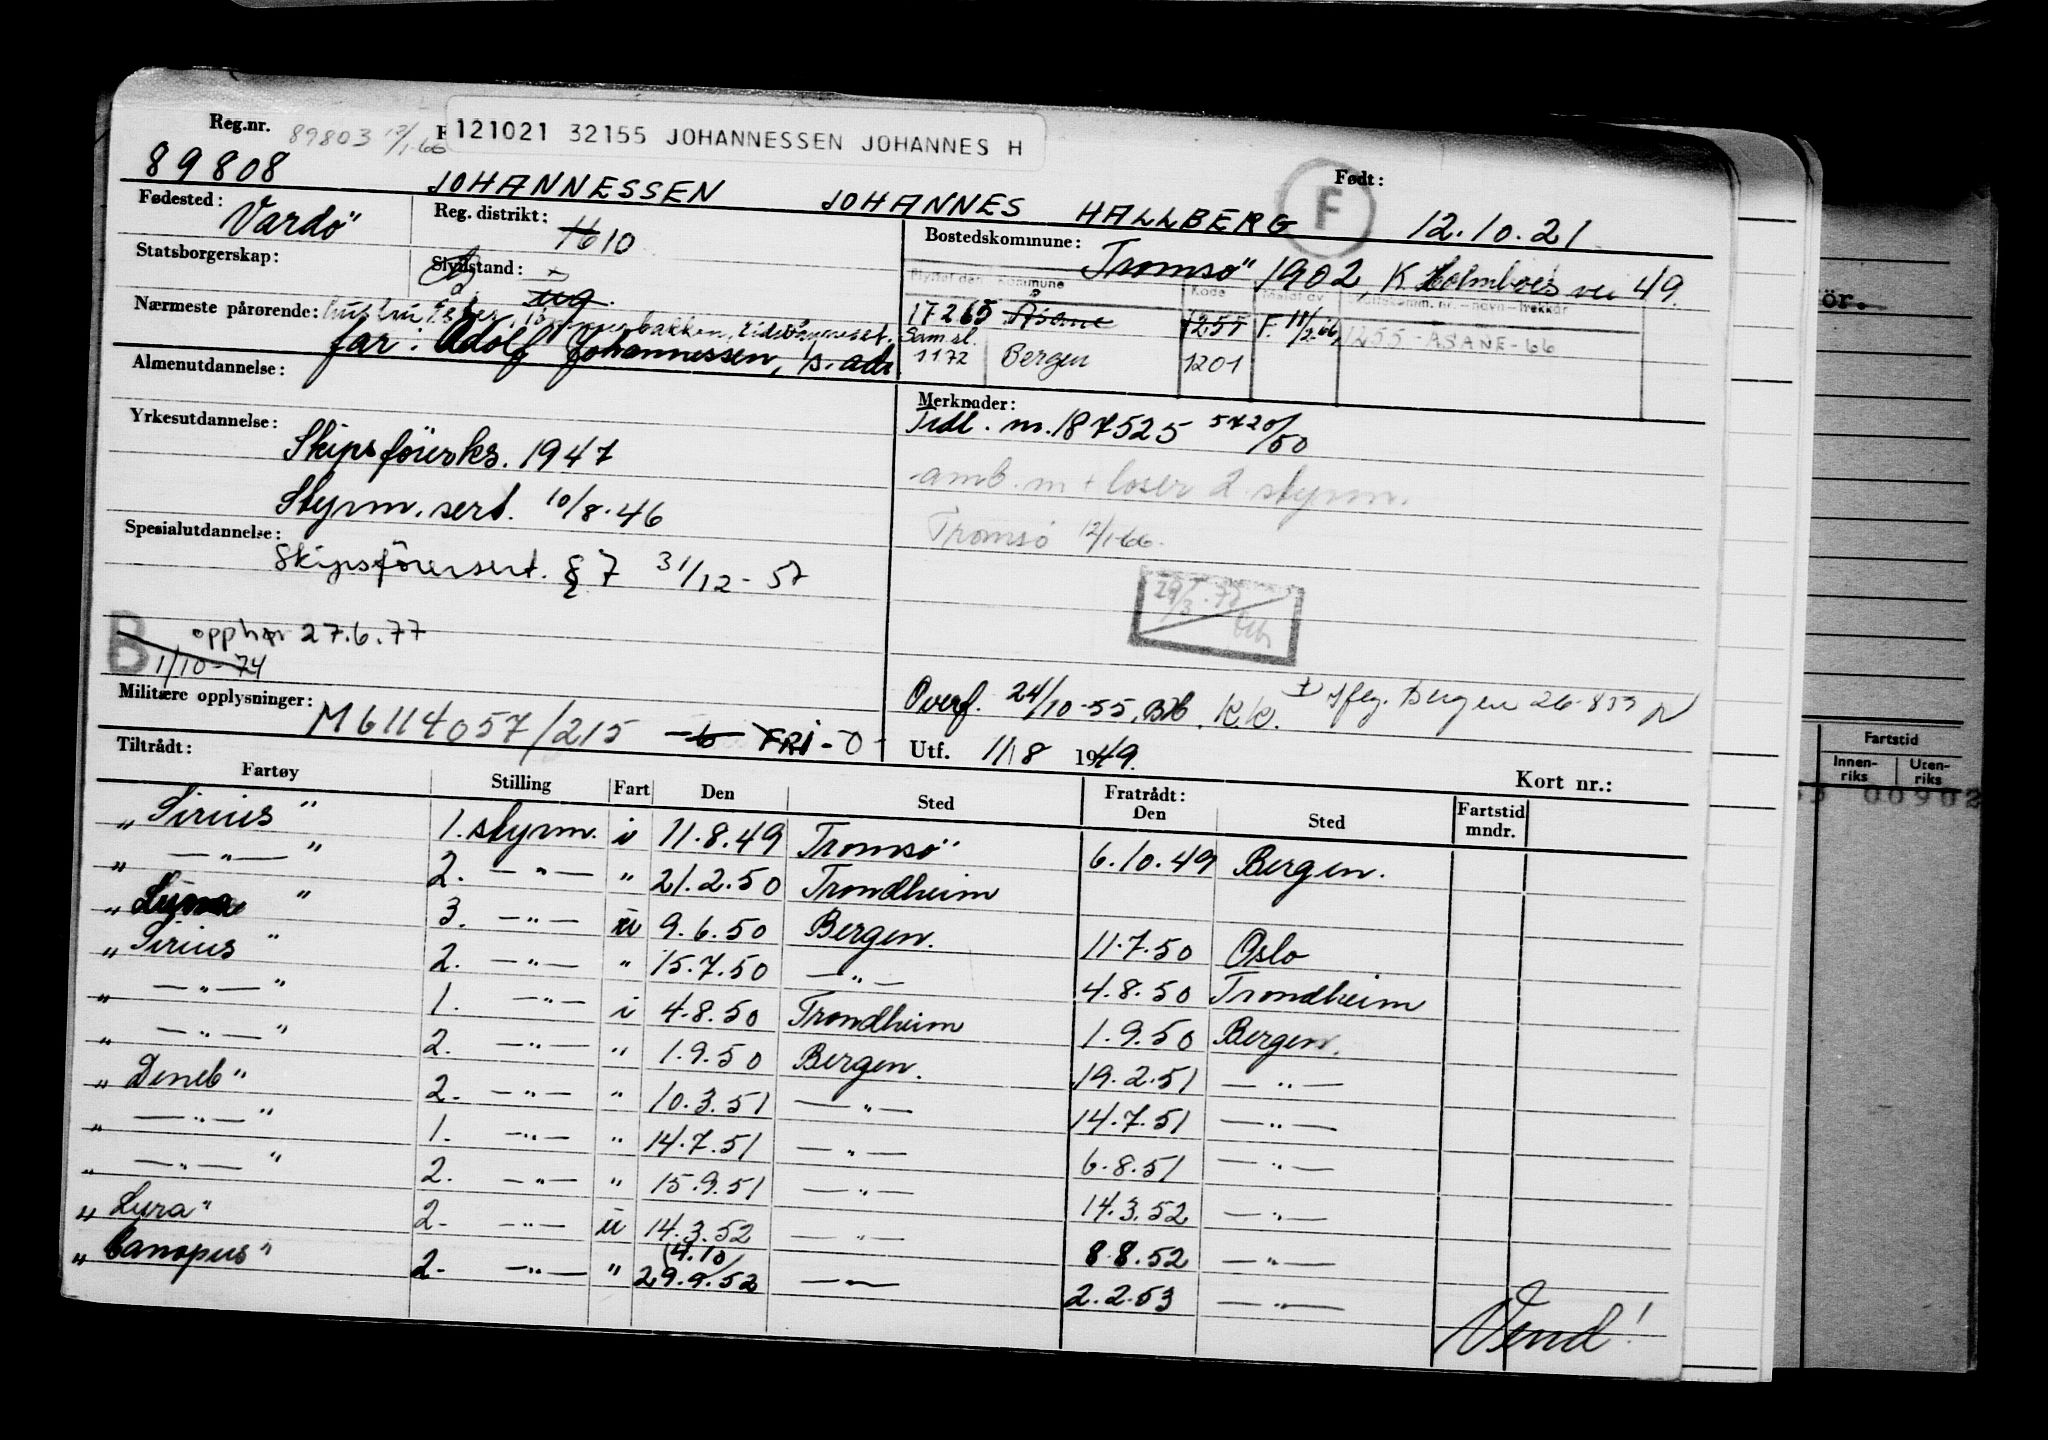 Reg.nr. 89803 12/1-66
121021 32155 JOHANNESSEN JOHANNES H
89808 JOHANNESSEN JOHANNES HALLBERG F Født: 12.10.21
Fødested: Vardö Reg. distrikt: 10 Bostedskommune: Tromsö 1902, K Holmboes vei 49.
Statsborgerskap: Sivilstand: ug.
kommune Kode
17265 Åsane 1255 F. 11/2-66 1255-ÅSANE-66
Nærmeste pårørende: hustru
far: Adolf Johannessen, s. adr
Sam.sl. 1172 Bergen 1201
Almenutdannelse:
Merknader:
Tidl. m. 187525 5720/50
Yrkesutdannelse:
Skipsförerks. 1947
amb. m + loser 2. styrm.
Styrm. sert. 10/8-46
Tromsö 12/1-66.
Spesialutdannelse:
Skipsförersert. § 7 31/12-57
B opphør 27.6.77
1/10-74
Militære opplysninger: M6114057/215 FRI-0-
Overf. 24/10-55, K.K. Bergen
Utf. 11/8 1949.
Tiltrådt: Kort nr.:
Fartøy Stilling Fart Den Sted Fratrådt: Den Sted Fartstid mndr.
"Sirius" 1. styrm. i 11.8.49 Tromsö 6.10.49 Bergen.
" —"— " 2. —"— " 21.2.50 Trondheim
" Lyra " 3. —"— u 9.6.50 Bergen. 11.7.50 Oslo
"Sirius" 2. —"— " 15.7.50 —"— 4.8.50 Trondheim
" —"— " 1. —"— i 4.8.50 Trondheim 1.9.50 Bergen.
" —"— " 2. —"— " 1.9.50 Bergen. 19.2.51 —"—
"Deneb" 2. —"— " 10.3.51 —"— 14.7.51 —"—
" —"— " 1. —"— " 14.7.51 —"— 6.8.51 —"—
" —"— " 2. —"— " 15.9.51 —"— 14.3.52 —"—
"Lyra" 2. —"— u 14.3.52 —"— 8.8.52 —"—
"Canopus" 2. —"— " (4.10) 29.9.52 —"— 2.2.53 —"—
Vend!
ör.
Fartstid
Innen-riks Uten-riks
00902